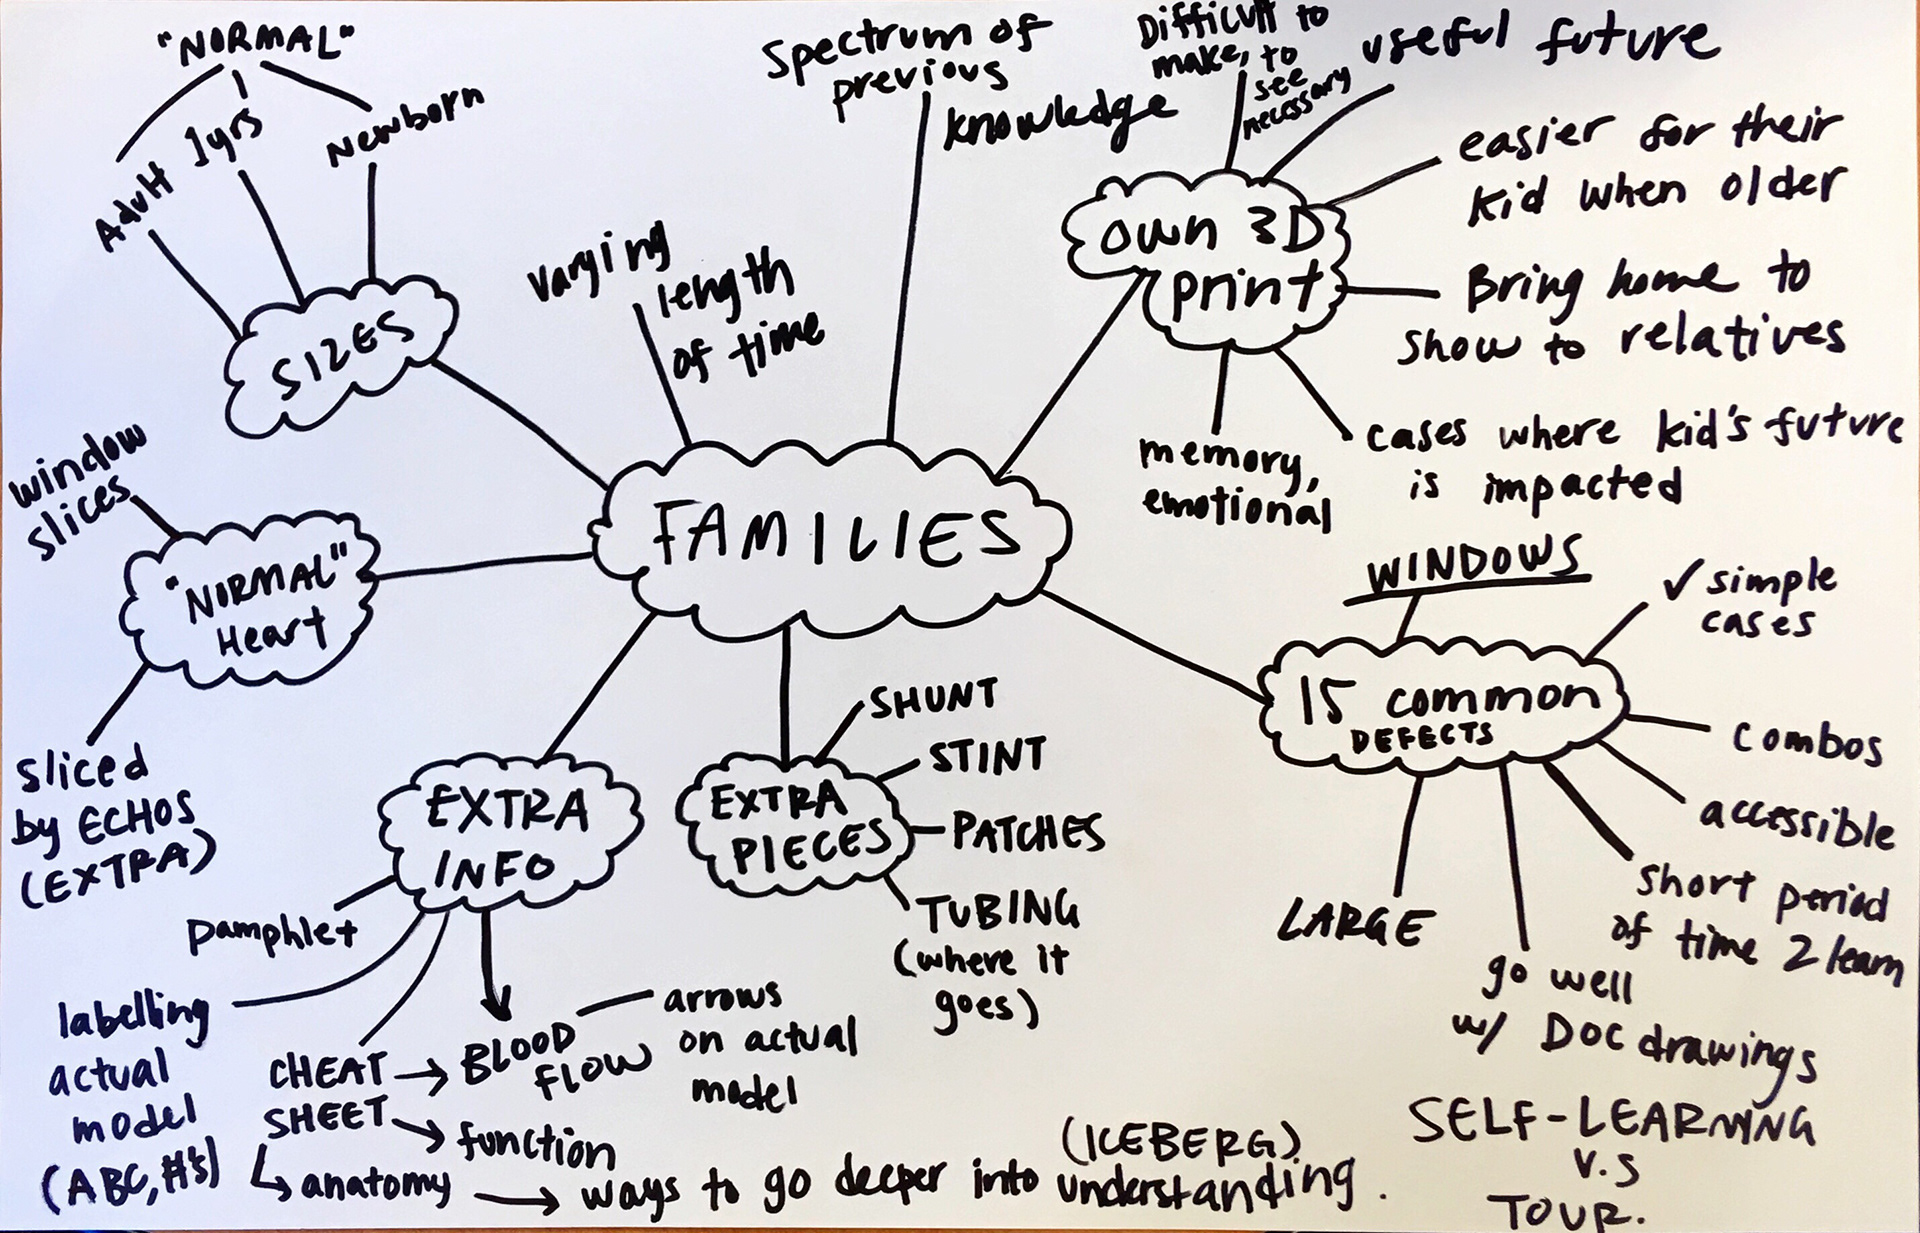 "NORMAL"
Adult
1yrs
Newborn
SIZES
varying
length
of time
Spectrum of
previous
knowledge
Difficult to
make, to
see
necessary
useful future
easier for their
kid when older
own 3D
print
Bring home to
show to relatives
memory,
emotional
cases where kid's future
is impacted
window
slices
"NORMAL"
Heart
sliced
by ECHOS
(EXTRA)
FAMILIES
WINDOWS
✓ simple
cases
15 common
DEFECTS
combos
accessible
short period
of time 2 learn
go well
w/ DOC drawings
LARGE
SELF-LEARNING
V.S
TOUR.
EXTRA
PIECES
SHUNT
STINT
PATCHES
TUBING
(where it
goes)
EXTRA
INFO
pamphlet
labelling
actual
model
(ABC, #'s)
CHEAT → BLOOD
SHEET FLOW
arrows
on actual
model
function
anatomy → ways to go deeper into understanding.
(ICEBERG)